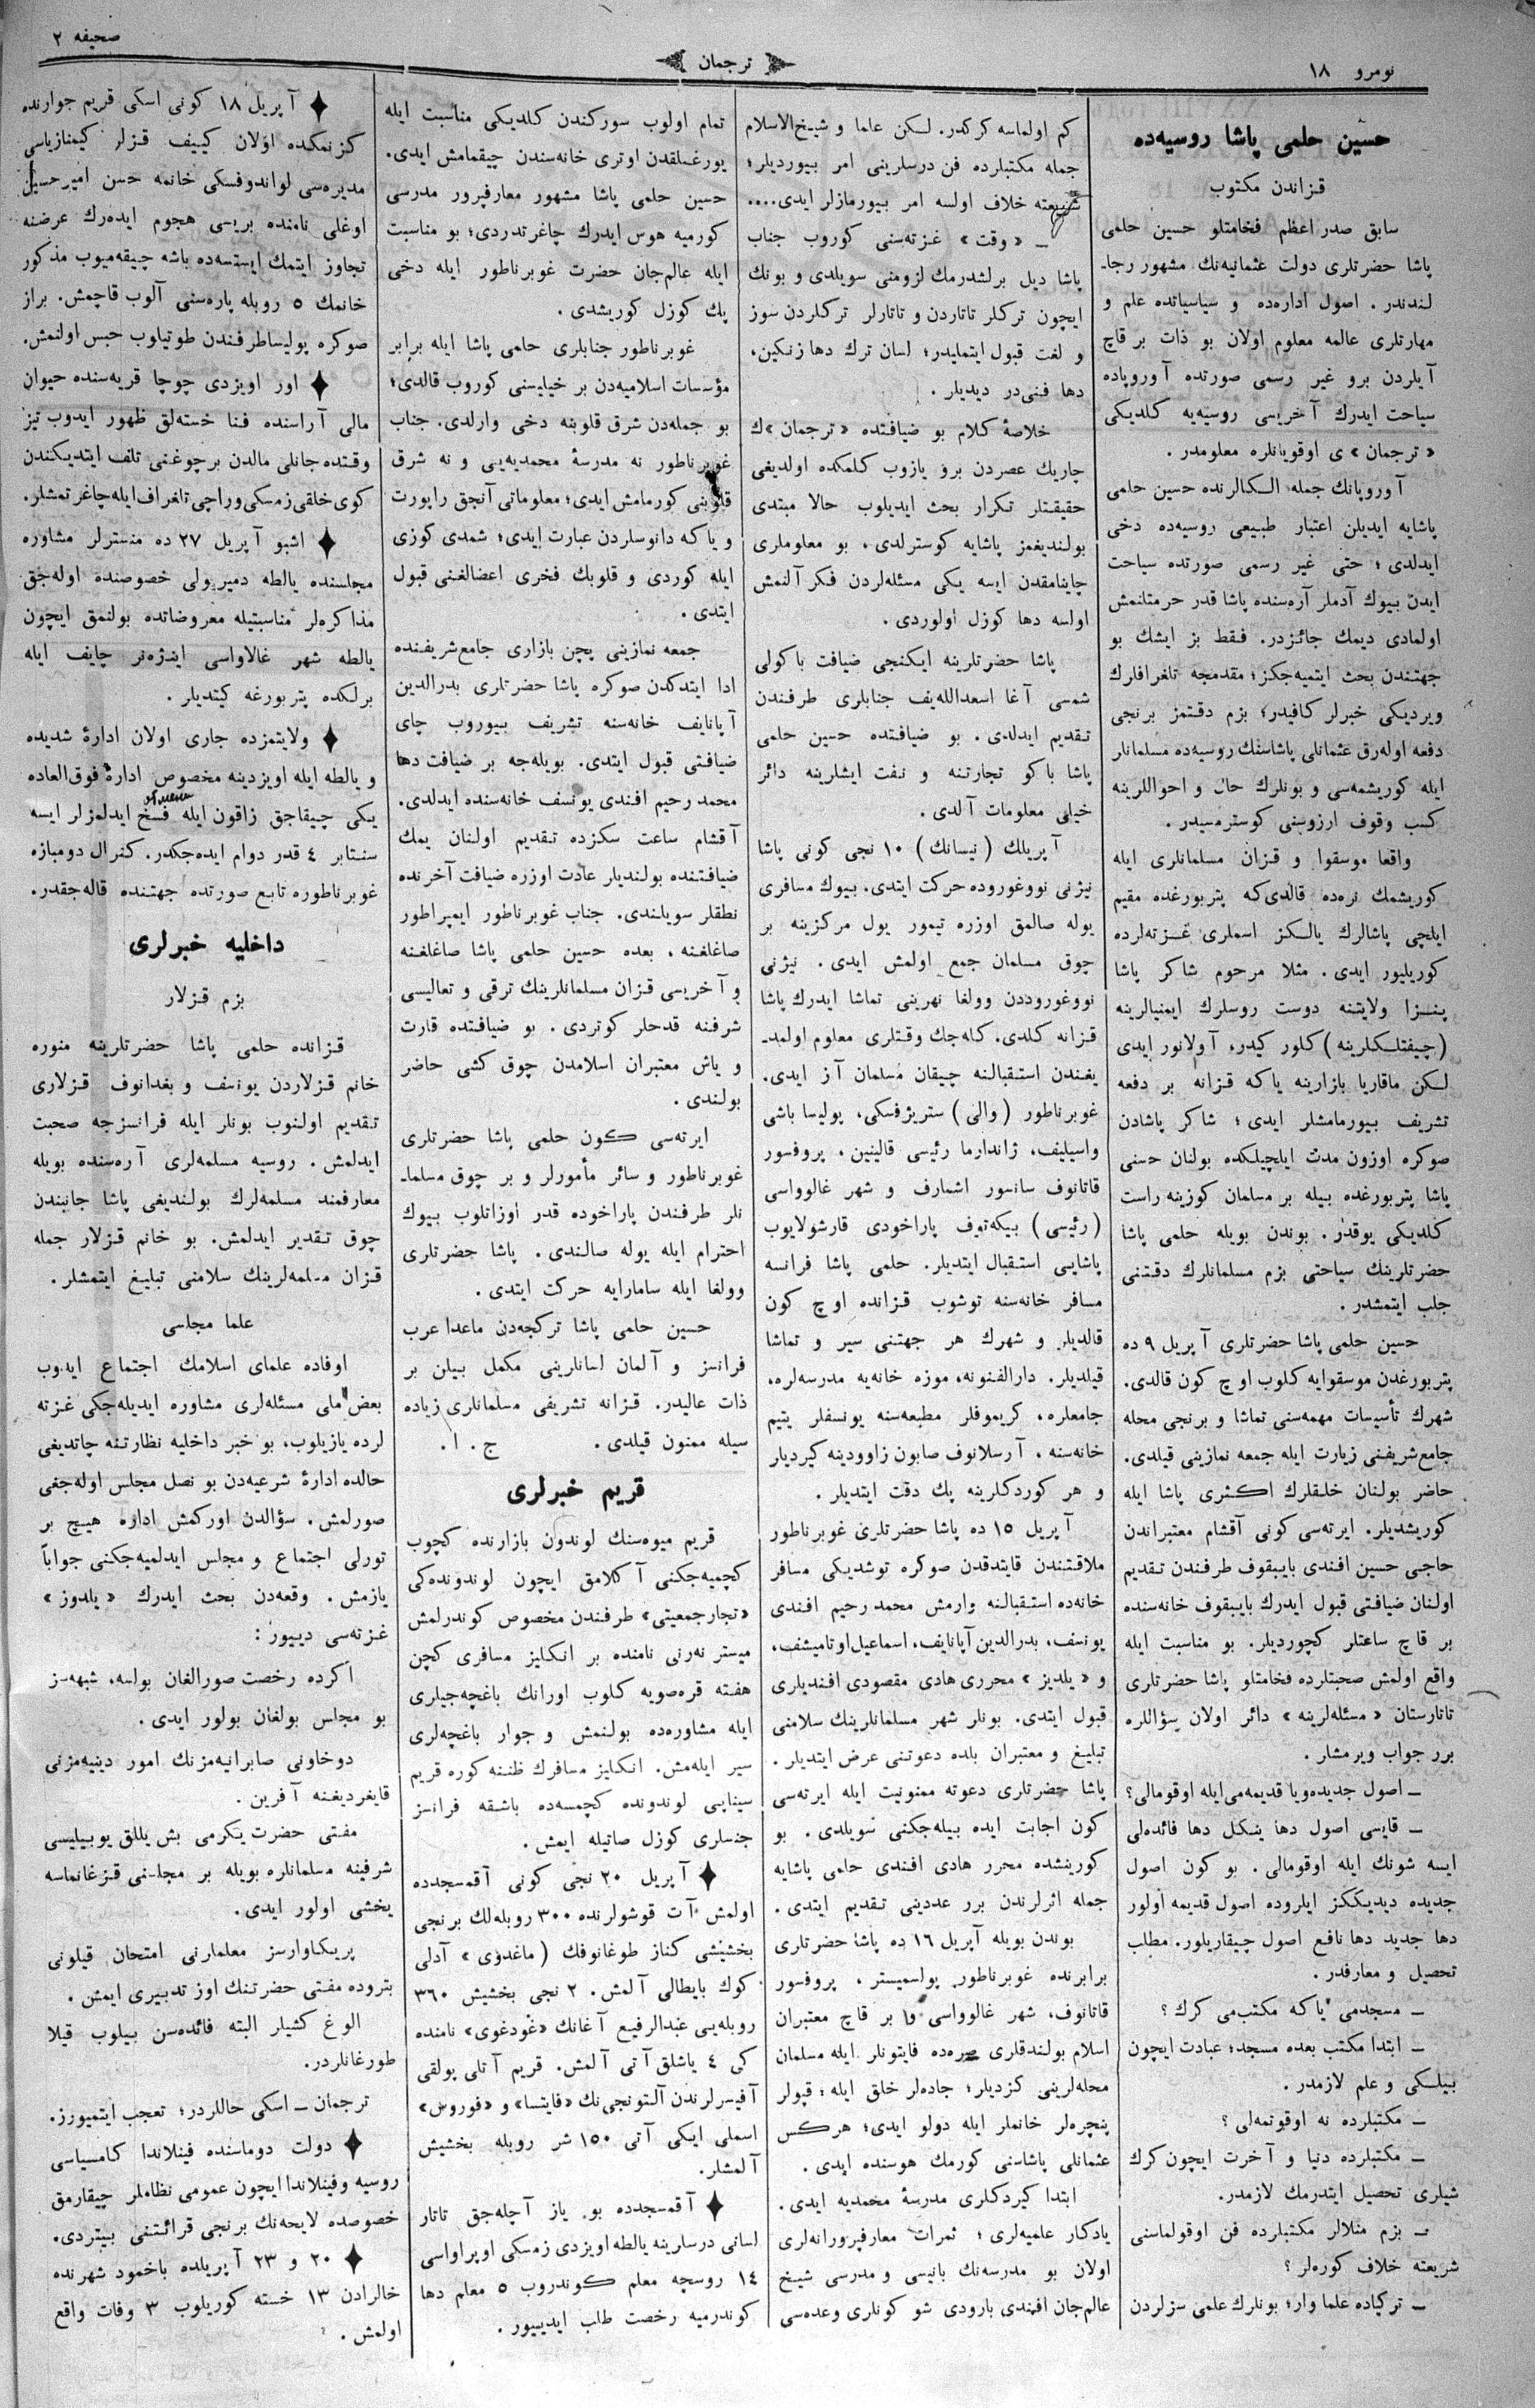 نومرو ١٨
ترجمان
صحيفه ٢
حسين حلمى پاشا روسيه‌ده
قزاندن مكتوب
سابق صدر اعظم فخامتلو حسين حلمى
پاشا حضرتلرى دولت عثمانيه‌نك مشهور رجا-
لندندر. اصول اداره‌ده و سياسياتده علم و
مهارتلرى عالمه معلوم اولان بو ذات بر قاچ
آيلردن برو غير رسمى صورتده آوروپاده
سياحت ايدرك آخريسى روسيه‌يه كلديكى
«ترجمان» ى اوقويانلره معلومدر.
آوروپانك جمله الكالرنده حسين حلمى
پاشايه ايديلن اعتبار طبيعى روسيه‌ده دخى
ايدلدى؛ حتى غير رسمى صورتده سياحت
ايدن بيوك آدملر آره‌سنده پاشا قدر حرمتلنمش
اولمادى ديمك جائزدر. فقط بز ايشك بو
جهتندن بحث ايتميه‌جكز؛ مقدمجه تلغرافلرك
ويرديكى خبرلر كافيدر؛ بزم دقتمز برنجى
دفعه اوله‌رق عثمانلى پاشاسنك روسيه‌ده مسلمانلر
ايله كوريشمه‌سى و بونلرك حال و احواللرينه
كسب وقوف ارزوسنى كوسترمسيدر.
واقعا موسقوا و قزان مسلمانلرى ايله
كوريشمك نره‌ده قالدى كه پتربورغده مقيم
ايلچى پاشالرك يالكز اسملرى غزته‌لرده
كوريليور ايدى. مثلا مرحوم شاكر پاشا
پنزا ولايتنه دوست روسلرك ايمنيالرينه
(چيفتلكلرينه) كلور كيدر، آولانور ايدى
لكن ماقاريا بازارينه ياكه قزانه بر دفعه
تشريف بيورمامشلر ايدى؛ شاكر پاشادن
صوكره اوزون مدت ايلچيلكده بولنان حسنى
پاشا پتربورغده بيله بر مسلمان كوزينه راست
كلديكى يوقدر. بوندن بويله حلمى پاشا
حضرتلرينك سياحتى بزم مسلمانلرك دقتنى
جلب ايتمشدر.
حسين حلمى پاشا حضرتلرى آپريل ٩ ده
پتربورغدن موسقوايه كلوب اوچ كون قالدى.
شهرك تأسيسات مهمه‌سنى تماشا و برنجى محله
جامع شريفنى زيارت ايله جمعه نمازينى قيلدى.
حاضر بولنان خلقلرك اكثرى پاشا ايله
كوريشديلر. ايرته‌سى كونى آقشام معتبراندن
حاجى حسين افندى بايبقوف طرفندن تقديم
اولنان ضيافتى قبول ايدرك بايبقوف خانه‌سنده
بر قاچ ساعتلر كچورديلر. بو مناسبت ايله
واقع اولمش صحبتلرده فخامتلو پاشا حضرتلرى
تاتارستان «مسئله‌لرينه» دائر اولان سؤاللره
برر جواب ويرمشلر.
ــ اصول جديده‌ويا قديمه‌مى ايله اوقومالى؟
ــ قايسى اصول دها ينكل دها فائده‌لى
ايسه شونك ايله اوقومالى. بو كون اصول
جديده ديديككز ايلروده اصول قديمه اولور
دها جديد دها نافع اصول چيقاريلور. مطلب
تحصيل و معارفدر.
ــ مسجدمى ياكه مكتب‌مى كرك؟
ــ ابتدا مكتب بعده مسجد؛ عبادت ايچون
بيلكى و علم لازمدر.
ــ مكتبلرده نه اوقوتمه‌لى؟
ــ مكتبلرده دنيا و آخرت ايچون كرك
شيلرى تحصيل ايتدرمك لازمدر.
ــ بزم منلالر مكتبلرده فن اوقولماسنى
شريعته خلاف كوره‌لر؟
ــ تركياده علما وار؛ بونلرك علمى سزلردن
كم اولماسه كركدر. لكن علما و شيخ‌الاسلام
جمله مكتبلرده فن درسلرينى امر بيورديلر؛
شريعته خلاف اولسه امر بيورمازلر ايدى....
ــ «وقت» غزته‌سنى كوروب جناب
پاشا ديل برلشدرمك لزومنى سويلدى و بونك
ايچون تركلر تاتاردن و تاتارلر تركلردن سوز
و لغت قبول ايتمليدر؛ لسان ترك دها زنكين،
دها فنى‌در ديديلر.
خلاصهٔ كلام بو ضيافتده «ترجمان»ك
چاريك عصردن برو يازوب كلمكده اولديغى
حقيقتلر تكرار بحث ايديلوب حالا مبتدى
بولنديغمز پاشايه كوسترلدى، بو معلوملرى
چاينامقدن ايسه يكى مسئله‌لردن فكر آلنمش
اولسه دها كوزل اولوردى.
پاشا حضرتلرينه ايكنجى ضيافت باكولى
شمسى آغا اسعدالله‌يف جنابلرى طرفندن
تقديم ايدلدى. بو ضيافتده حسين حلمى
پاشا باكو تجارتنه و نفت ايشلرينه دائر
خيلى معلومات آلدى.
آپريلك (نيسانك) ١٠ نجى كونى پاشا
نيژنى نووغوروده حركت ايتدى. بيوك مسافرى
يوله صالمق اوزره تيمور يول مركزينه بر
چوق مسلمان جمع اولمش ايدى. نيژنى
نووغوروددن وولغا نهرينى تماشا ايدرك پاشا
قزانه كلدى. كله‌جك وقتلرى معلوم اولمد-
يغندن استقبالنه چيقان مسلمان آز ايدى.
غوبرناطور (والى) ستريژفسكى، پوليسا باشى
واسيليف، ژاندارما رئيسى قالينين، پروفسور
قاتانوف سانسور اشمارف و شهر غالوواسى
(رئيسى) بيكه‌تيوف پاراخودى قارشولايوب
پاشايى استقبال ايتديلر. حلمى پاشا فرانسه
مسافر خانه‌سنه توشوب قزانده اوچ كون
قالديلر و شهرك هر جهتنى سير و تماشا
قيلديلر. دارالفنونه، موزه خانه‌يه مدرسه‌لره،
جامعلره، كريموفلر مطبعه‌سنه يونسفلر يتيم
خانه‌سنه، آرسلانوف صابون زاوودينه كيرديلر
و هر كوردكلرينه پك دقت ايتديلر.
آپريل ١٥ ده پاشا حضرتلرى غوبرناطور
ملاقتندن قايتدقدن صوكره توشديكى مسافر
خانه‌ده استقبالنه وارمش محمد رحيم افندى
يونسف، بدرالدين آپانايف، اسماعيل اوتاميشف،
و «يلديز» محررى هادى مقصودى افنديلرى
قبول ايتدى. بونلر شهر مسلمانلرينك سلامنى
تبليغ و معتبران بلده دعوتنى عرض ايتديلر.
پاشا حضرتلرى دعوته ممنونيت ايله ايرته‌سى
كون اجابت ايده بيله‌جكنى سويلدى. بو
كورينشده محرر هادى افندى حلمى پاشايه
جمله اثرلرندن برر عددينى تقديم ايتدى.
بوندن بويله آپريل ١٦ ده پاشا حضرتلرى
برابرنده غوبرناطور پولسميستر، پروفسور
قاتانوف، شهر غالوواسى و بر قاچ معتبران
اسلام بولندقلرى صره‌ده فايتونلر ايله مسلمان
محله‌لرينى كزديلر؛ جاده‌لر خلق ايله، قپولر
پنچره‌لر خانملر ايله دولو ايدى؛ هركس
عثمانلى پاشاسنى كورمك هوسنده ايدى.
ابتدا كيردكلرى مدرسهٔ محمديه ايدى.
يادكار علميه‌لرى؛ ثمرات معارفپرورانه‌لرى
اولان بو مدرسه‌نك بانيسى و مدرسى شيخ
عالم‌جان افندى بارودى شو كونلرى وعده‌سى
تمام اولوب سوركندن كلديكى مناسبت ايله
يورغنلقدن اوترى خانه‌سندن چيقمامش ايدى.
حسين حلمى پاشا مشهور معارفپرور مدرسى
كورميه هوس ايدرك چاغرتدردى؛ بو مناسبت
ايله عالم‌جان حضرت غوبرناطور ايله دخى
پك كوزل كوريشدى.
غوبرناطور جنابلرى حلمى پاشا ايله برابر
مؤسسات اسلاميه‌دن بر خيليسنى كوروب قالدى؛
بو جمله‌دن شرق قلوبنه دخى وارلدى. جناب
غوبرناطور نه مدرسهٔ محمديه‌يى و نه شرق
قلوبنى كورمامش ايدى؛ معلوماتى آنجق راپورت
و ياكه دانوسلردن عبارت ايدى؛ شمدى كوزى
ايله كوردى و قلوبك فخرى اعضالغنى قبول
ايتدى.
جمعه نمازينى پچن بازارى جامع شريفنده
ادا ايتدكدن صوكره پاشا حضرتلرى بدرالدين
آپانايف خانه‌سنه تشريف بيوروب چاى
ضيافتى قبول ايتدى. بويله‌جه بر ضيافت دها
محمد رحيم افندى يونسف خانه‌سنده ايدلدى.
آقشام ساعت سكزده تقديم اولنان يمك
ضيافتنده بولنديلر عادت اوزره ضيافت آخرنده
نطقلر سويلندى. جناب غوبرناطور ايمپراطور
صاغلغنه، بعده حسين حلمى پاشا صاغلغنه
و آخريسى قزان مسلمانلرينك ترقى و تعاليسى
شرفنه قدحلر كوتردى. بو ضيافتده قارت
و ياش معتبران اسلامدن چوق كشى حاضر
بولندى.
ايرته‌سى كون حلمى پاشا حضرتلرى
غوبرناطور و سائر مأمورلر و بر چوق مسلما-
نلر طرفندن پاراخوده قدر اوزاتلوب بيوك
احترام ايله يوله صالندى. پاشا حضرتلرى
وولغا ايله سامارايه حركت ايتدى.
حسين حلمى پاشا تركجه‌دن ماعدا عرب
فرانسز و آلمان لسانلرينى مكمل بيلن بر
ذات عاليدر. قزانه تشريفى مسلمانلرى زياده
سيله ممنون قيلدى. ج. ا.
قريم خبرلرى
قريم ميوه‌سنك لوندون بازارنده كچوب
كچميه‌جكنى آكلامق ايچون لوندونده‌كى
«تجار جمعيتى» طرفندن مخصوص كوندرلمش
ميستر نه‌رنى نامنده بر انكليز مسافرى كچن
هفته قره‌صوبه كلوب اورانك باغچه‌جيلرى
ايله مشاوره‌ده بولنمش و جوار باغچه‌لرى
سير ايله‌مش. انكليز مسافرك ظننه كوره قريم
سيناپى لوندونده كچمسه‌ده باشقه فرانسز
جنسلرى كوزل صاتيله ايمش.
آپريل ٢٠ نجى كونى آقمسجدده
اولمش آت قوشولرنده ٣٠٠ روبله‌لك برنجى
بخشيشى كناز طوغانوفك (ماغدوى» آدلى
كوك بايطالى آلمش. ٢ نجى بخشيش ٣٦٠
روبله‌يى عبدالرفيع آغانك «غودغوى» نامنده
كى ٤ ياشلق آتى آلمش. قريم آتلى پولقى
آفيسرلرندن آلتونجى‌نك «فايتسا» و «فوروس»
اسملى ايكى آتى ١٥٠ شر روبله بخشيش
آلمشلر.
آقمسجدده بو ياز آچله‌جق تاتار
لسانى درسلرينه يالطه اويزدى زمسكى اوپراواسى
١٤ روسچه معلم كوندروب ٥ معلم دها
كوندرميه رخصت طلب ايدييور.
آپريل ١٨ كونى اسكى قريم جوارنده
كزنمكده اولان كييف قزلر كيمنازياسى
مديره‌سى لواندوفسكى خانمه حسن اميرحسين
اوغلى نامنده بريسى هجوم ايده‌رك عرضنه
تجاوز ايتمك ايستسه‌ده باشه چيقه‌ميوب مذكور
خانمك ٥ روبله پاره‌سنى آلوب قاچمش. براز
صوكره پوليسا طرفندن طوتيلوب حبس اولنمش.
اور اويزدى چوچا قريه‌سنده حيوان
مالى آراسنده فنا خسته‌لق ظهور ايدوب تيز
وقتده جانلى مالدن بر چوغنى تلف ايتديكندن
كوى خلقى زمسكى وراچى تلغراف ايله چاغرتمشلر.
اشبو آپريل ٢٧ ده منسترلر مشاوره
مجلسنده يالطه دمير يولى خصوصنده اوله‌جق
مذاكره‌لر مناسبتيله معروضاتده بولنمق ايچون
يالطه شهر غالاواسى اينژه‌نر چايف ايله
برلكده پتربورغه كيتديلر.
ولايتمزده جارى اولان ادارهٔ شديده
و يالطه ايله اويزدينه مخصوص ادارهٔ فوق‌العاده
يكى چيقاجق زاقون ايله فسخ ايدلمزلر ايسه
سنتابر ٤ قدر دوام ايده‌جكدر. كنرال دومبازه
غوبرناطوره تابع صورتده جهتنده قاله‌جقدر.
داخليه خبرلرى
بزم قزلار
قزانده حلمى پاشا حضرتلرينه منوره
خانم قزلاردن يونسف و بغدانوف قزلارى
تقديم اولنوب بونلر ايله فرانسزجه صحبت
ايدلمش. روسيه مسلمه‌لرى آره‌سنده بويله
معارفمند مسلمه‌لرك بولنديغى پاشا جانبندن
چوق تقدير ايدلمش. بو خانم قزلار جمله
قزان مسلمه‌لرينك سلامنى تبليغ ايتمشلر.
علما مجلسى
اوفاده علماى اسلامك اجتماع ايدوب
بعض ملى مسئله‌لرى مشاوره ايديله‌جكى غزته
لرده يازيلوب، بو خبر داخليه نظارتنه چاتديغى
حالده ادارهٔ شرعيه‌دن بو نصل مجلس اوله‌جغى
صورلمش. سؤالدن اوركمش اداره هيچ بر
تورلى اجتماع و مجلس ايدلميه‌جكنى جواباً
يازمش. وقعه‌دن بحث ايدرك «يلدوز»
غزته‌سى ديييور:
اكرده رخصت صورالغان بولسه، شبهه‌سز
بو مجلس بولغان بولور ايدى.
دوخاونى صابرانيه‌مزنك امور دينيه‌مزنى
قايغرديغنه آفرين.
مفتى حضرت يكرمى بش يللق يوبيليسى
شرفينه مسلمانلره بويله بر مجلسنى قزغانماسه
يخشى اولور ايدى.
پريكاوارسز معلمارنى امتحان قيلونى
بتروده مفتى حضرتنك اوز تدبيرى ايمش.
الوغ كشيلر البته فائده‌سن بيلوب قيلا
طورغانلردر.
ترجمان ــ اسكى حاللردر؛ تعجب ايتميورز.
دولت دوماسنده فينلاندا كامسياسى
روسيه وفينلاندا ايچون عمومى نظاملر چيقارمق
خصوصده لايحه‌نك برنجى قرائتنى بيتردى.
٢٠ و ٢٣ آپريلده باخمود شهرنده
خالرادن ١٣ خسته كوريلوب ٣ وفات واقع
اولمش.